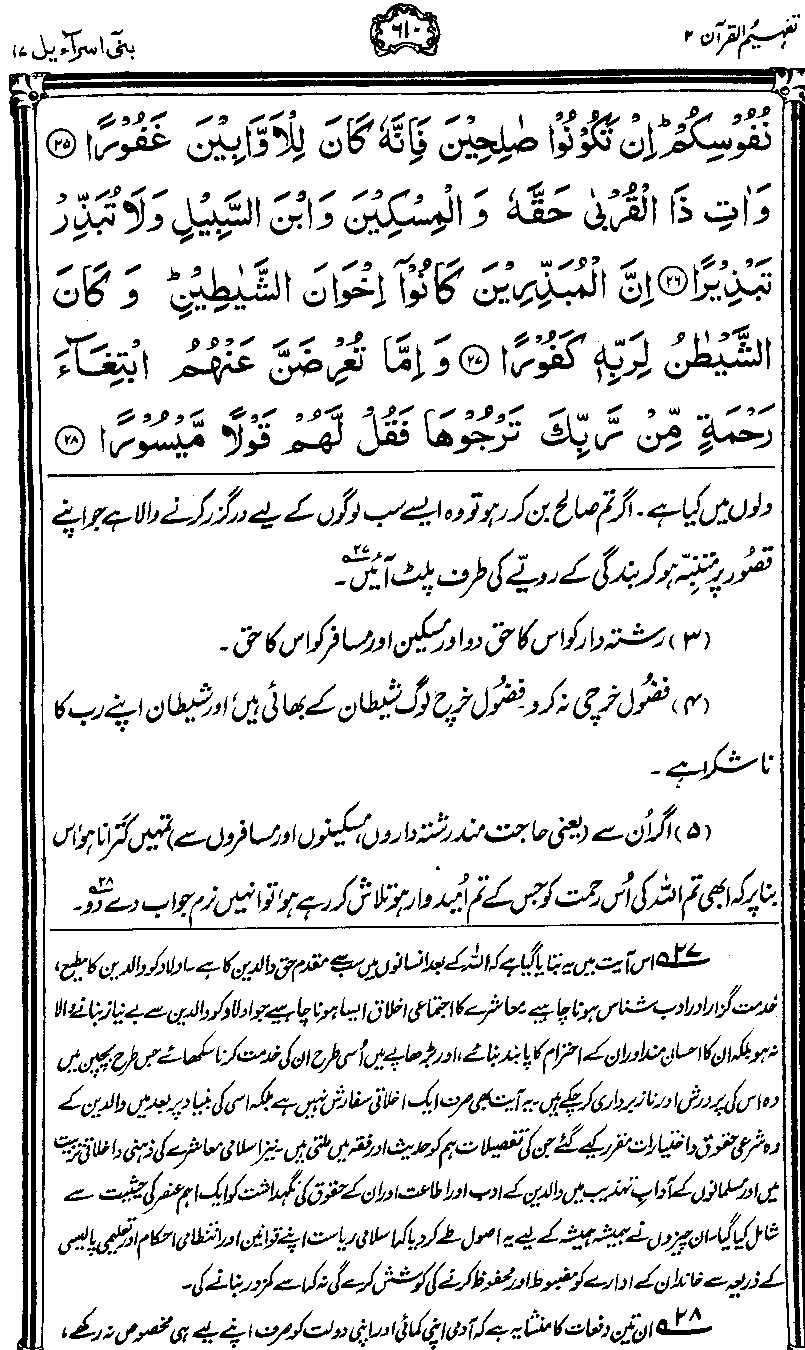 تفہیم القرآن ۲
۶۱۰
بنی اسرآءیل ۱۷
نُفُوْسِكُمْ ؕ اِنْ تَكُوْنُوْا صٰلِحِيْنَ فَاِنَّهٗ كَانَ لِلْاَوَّابِيْنَ غَفُوْرًا ۝۲۵
وَ اٰتِ ذَا الْقُرْبٰى حَقَّهٗ وَ الْمِسْكِيْنَ وَ ابْنَ السَّبِيْلِ وَ لَا تُبَذِّرْ
تَبْذِيْرًا ۝۲۶ اِنَّ الْمُبَذِّرِيْنَ كَانُوْۤا اِخْوَانَ الشَّيٰطِيْنِ ؕ وَ كَانَ
الشَّيْطٰنُ لِرَبِّهٖ كَفُوْرًا ۝۲۷ وَ اِمَّا تُعْرِضَنَّ عَنْهُمُ ابْتِغَآءَ
رَحْمَةٍ مِّنْ رَّبِّكَ تَرْجُوْهَا فَقُلْ لَّهُمْ قَوْلًا مَّيْسُوْرًا ۝۲۸
دلوں میں کیا ہے۔ اگر تم صالح بن کر رہو تو وہ ایسے سب لوگوں کے لیے درگزر کرنے والا ہے جو اپنے
قصُور پر متنبّہ ہو کر بندگی کے رویّے کی طرف پلٹ آئیں۲۷۔
(۳) رشتہ دار کو اس کا حق دو اور مسکین اور مسافر کو اس کا حق۔
(۴) فضُول خرچی نہ کرو۔ فضُول خرچ لوگ شیطان کے بھائی ہیں، اور شیطان اپنے رب کا
ناشکرا ہے۔
(۵) اگر اُن سے (یعنی حاجت مند رشتہ داروں، مسکینوں اور مسافروں سے) تمہیں کترانا ہو، اس
بنا پر کہ ابھی تم اللہ کی اُس رحمت کو جس کے تم اُمیدوار ہو تلاش کر رہے ہو، تو انہیں نرم جواب دے دو۲۸۔
۲۷ اس آیت میں یہ بتایا گیا ہے کہ اللہ کے بعد انسانوں میں سب سے مقدم حق والدین کا ہے۔ اولاد کو والدین کا مطیع،
خدمت گزار اور ادب شناس ہونا چاہیے۔ معاشرے کا اجتماعی اخلاق ایسا ہونا چاہیے جو اولاد کو والدین سے بے نیاز بنانے والا
نہ ہو بلکہ ان کا احسان مند اور ان کے احترام کا پابند بنائے، اور بڑھاپے میں اُسی طرح ان کی خدمت کرنا سکھائے جس طرح بچپن میں
وہ اس کی پرورش اور ناز برداری کر چکے ہیں۔ یہ آیت بھی صرف ایک اخلاقی سفارش نہیں ہے بلکہ اسی کی بنیاد پر بعد میں والدین کے
وہ شرعی حقوق و اختیارات مقرر کیے گئے جن کی تفصیلات ہم کو حدیث اور فقہ میں ملتی ہیں۔ نیز اسلامی معاشرے کی ذہنی و اخلاقی تربیت
میں اور مسلمانوں کے آدابِ تہذیب میں والدین کے ادب اور اطاعت اور ان کے حقوق کی نگہداشت کو ایک اہم عنصر کی حیثیت سے
شامل کیا گیا۔ ان چیزوں نے ہمیشہ ہمیشہ کے لیے یہ اصول طے کر دیا کہ اسلامی ریاست اپنے قوانین اور انتظامی احکام اور تعلیمی پالیسی
کے ذریعہ سے خاندان کے ادارے کو مضبوط اور محفوظ کرنے کی کوشش کرے گی نہ کہ اسے کمزور بنانے کی۔
۲۸ ان تین دفعات کا منشا یہ ہے کہ آدمی اپنی کمائی اور اپنی دولت کو صرف اپنے لیے ہی مخصوص نہ رکھے،